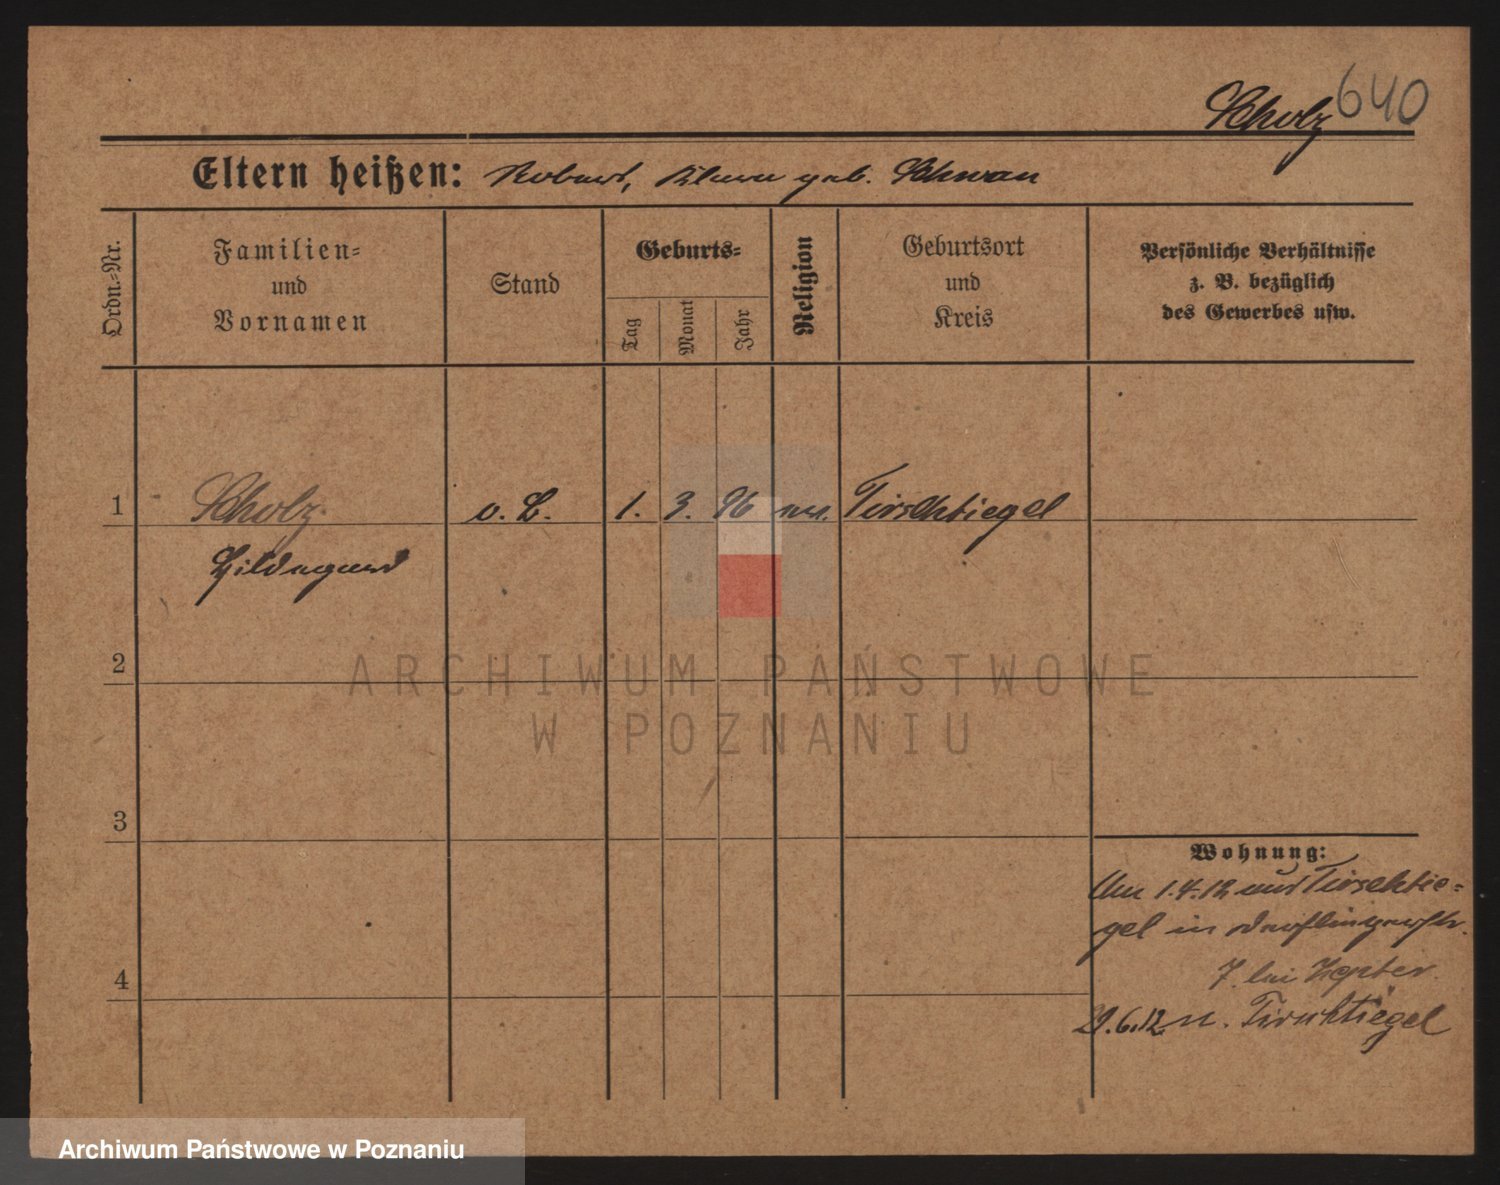 Scholz 640
Eltern heißen: Robert, geb. Schwan
Ordn.-Nr.
Familien-
und
Vornamen
Stand
Geburts-
Tag
Monat
Jahr
Religion
Geburtsort
und
Kreis
Persönliche Verhältnisse
z. B. bezüglich
des Gewerbes usw.
1 Scholz o. B. 1. 3. 96 Tirschtiegel
Hildegard
2
3
4
Wohnung:
Am 1.4.12 aus Tirschtie-
gel in
7. bei Zepter.
29.6.12 n. Tirschtiegel
ARCHIWUM PAŃSTWOWE
W POZNANIU
Archiwum Państwowe w Poznaniu